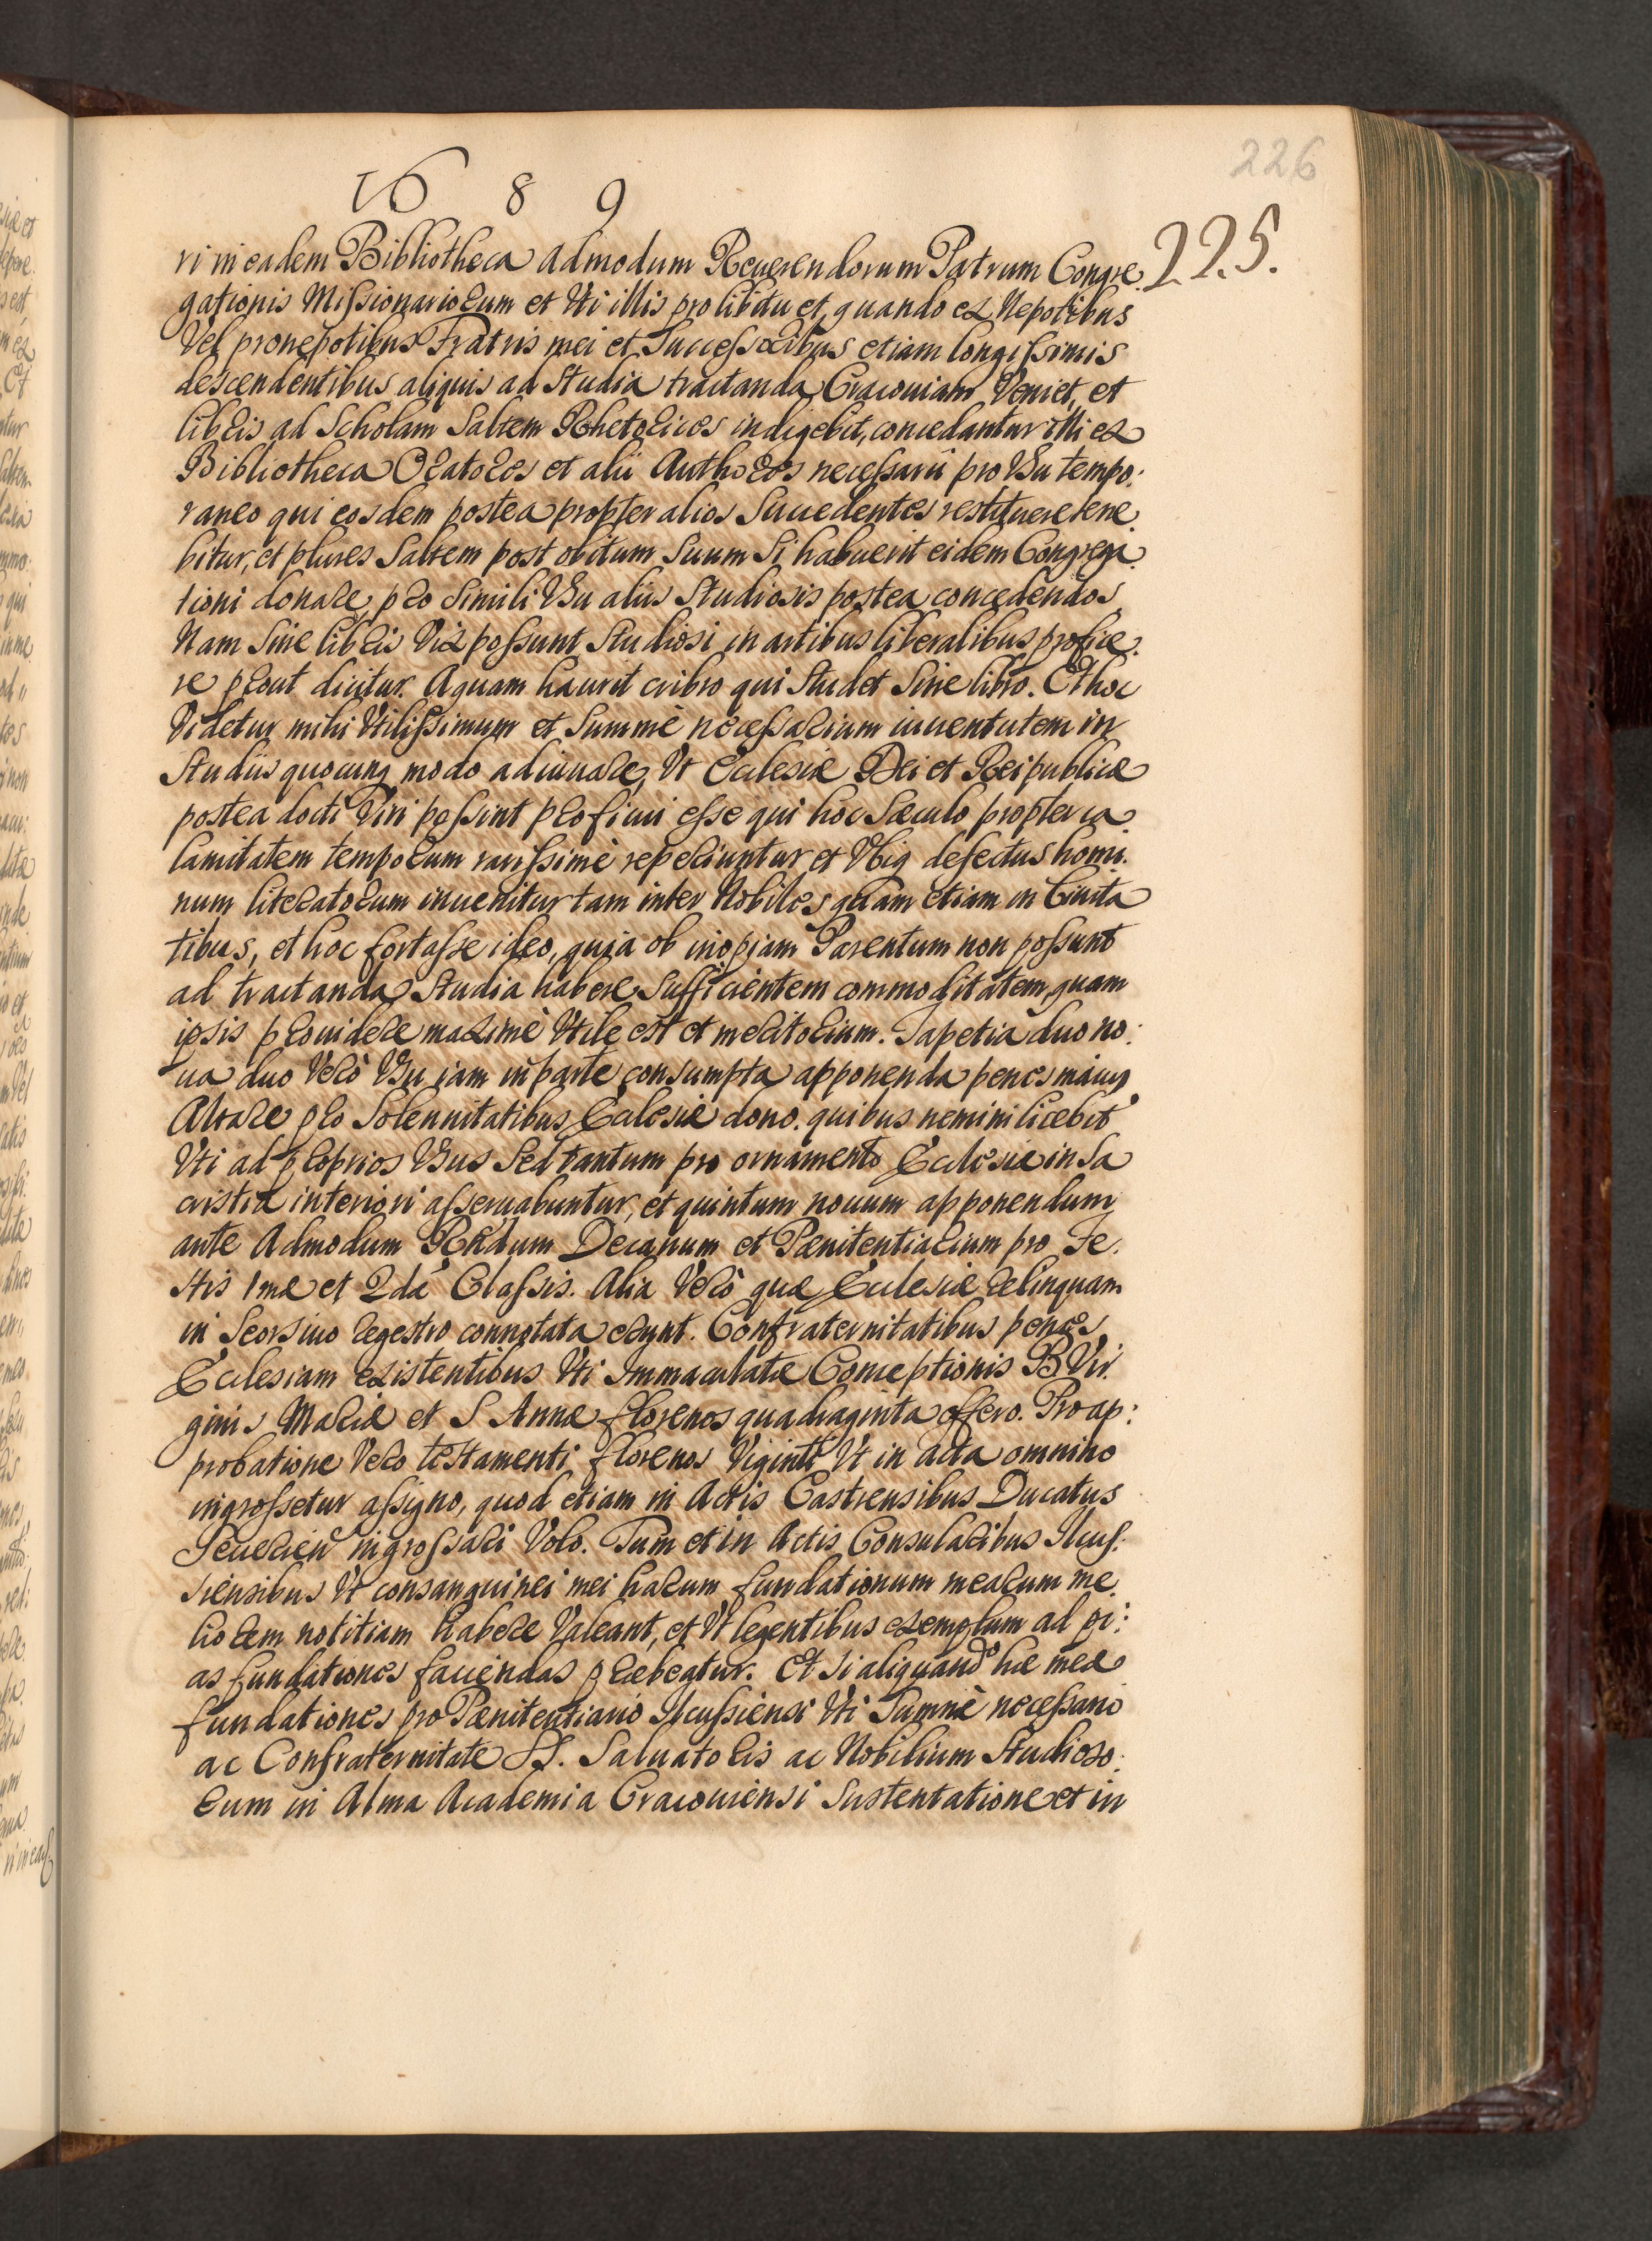 226
1689
225.
ri in eadem Bibliotheca Admodum Reuerendorum Patrum Congre.
gationis Missionariorum et Vti illis pro libitu et, quando ex Nepotibus
Vel pronepotibus Fratris mei et Successoribus etiam longissimis
descendentibus aliquis ad Studia tractanda Cracouiam Veniet, et
libris ad Scholam Saltem Rhetorices indigebit, concedantur illi ex
Bibliotheca Oratores et alii Authores necessarii pro Vsu tempo:
raneo qui eosdem postea propter alios Succedentes restituere tene.
bitur, et plures Saltem post obitum Suum Si habuerit eidem Congrega.
tioni donare pro Simili Vsu aliis Studiosis postea concedendos
Nam Sine libris Vix possunt Studiosi in artibus liberalibus profice.
re prout dicitur. Aquam haurit cribro qui Studet Sine libro. Et hoc
Videtur mihi Vtilissimum et Summè necessarium iuuentutem in
Studiis quocunq modo adiuuare, Vt Ecclesiæ Dei et Reipublicæ
postea docti Viri possint proficui esse qui hoc Sæculo propter ca.
lamitatem temporum rarissimè reperiuntur et Vbiq defectus homi.
num literatorum inuenitur tam inter Nobiles quam etiam in Ciuita
tibus, et hoc fortasse ideo, quia ob inopiam Parentum non possunt
ad tractanda Studia habere Sufficientem commoditatem, quam
ipsis prouidere maximè Vtile est et meritorium. Tapetia duo no:
ua duo Verò Vsu iam in parte consumpta apponenda penes maius
Altare pro Solennitatibus Ecclesiæ dono. quibus nemini licebit
Vti ad proprios Vsus Sed tantum pro ornamento Ecclesiæ in Sa
cristia interiori asseruabuntur, et quintum nouum apponendum
ante Admodum Rñdum Decanum et Pænitentiarium pro Fe.
stis 1mæ et 2dæ Classis. Alia Verò quæ Ecclesiæ relinquam
in Seorsiuo regestro connotata erunt. Confraternitatibus penes
Ecclesiam existentibus Vti Immaculatæ Conceptionis B Vir
ginis Mariæ et S Annæ florenos quadraginta offero. Pro ap:
probatione Vero testamenti florenos Viginti Vt in acta omnino
ingrossetur assigno, quod etiam in Actis Castrensibus Ducatus
Seuerien ingrossari Volo. Tum et in Actis Consularibus Ilcus.
siensibus Vt consanguinei mei harum fundationum mearum me.
liorem notitiam habere Valeant, et Vt legentibus exemplum ad pi:
as fundationes faciendas præbeatur. Et si aliquando hæ meæ
fundationes pro Pænitentiario Ilcussiensi Vti Summè necessario
ac Confraternitate SS. Saluatoris ac Nobilium Studioso.
rum in Alma Academia Cracouiensi Sustentatione et in